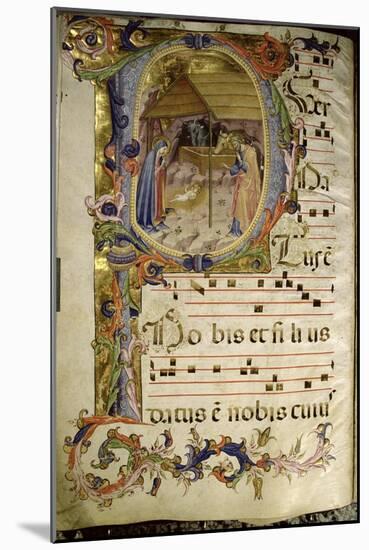 PUer
na
tus ē
No bis et fi li us
datus ē nobis cuiu